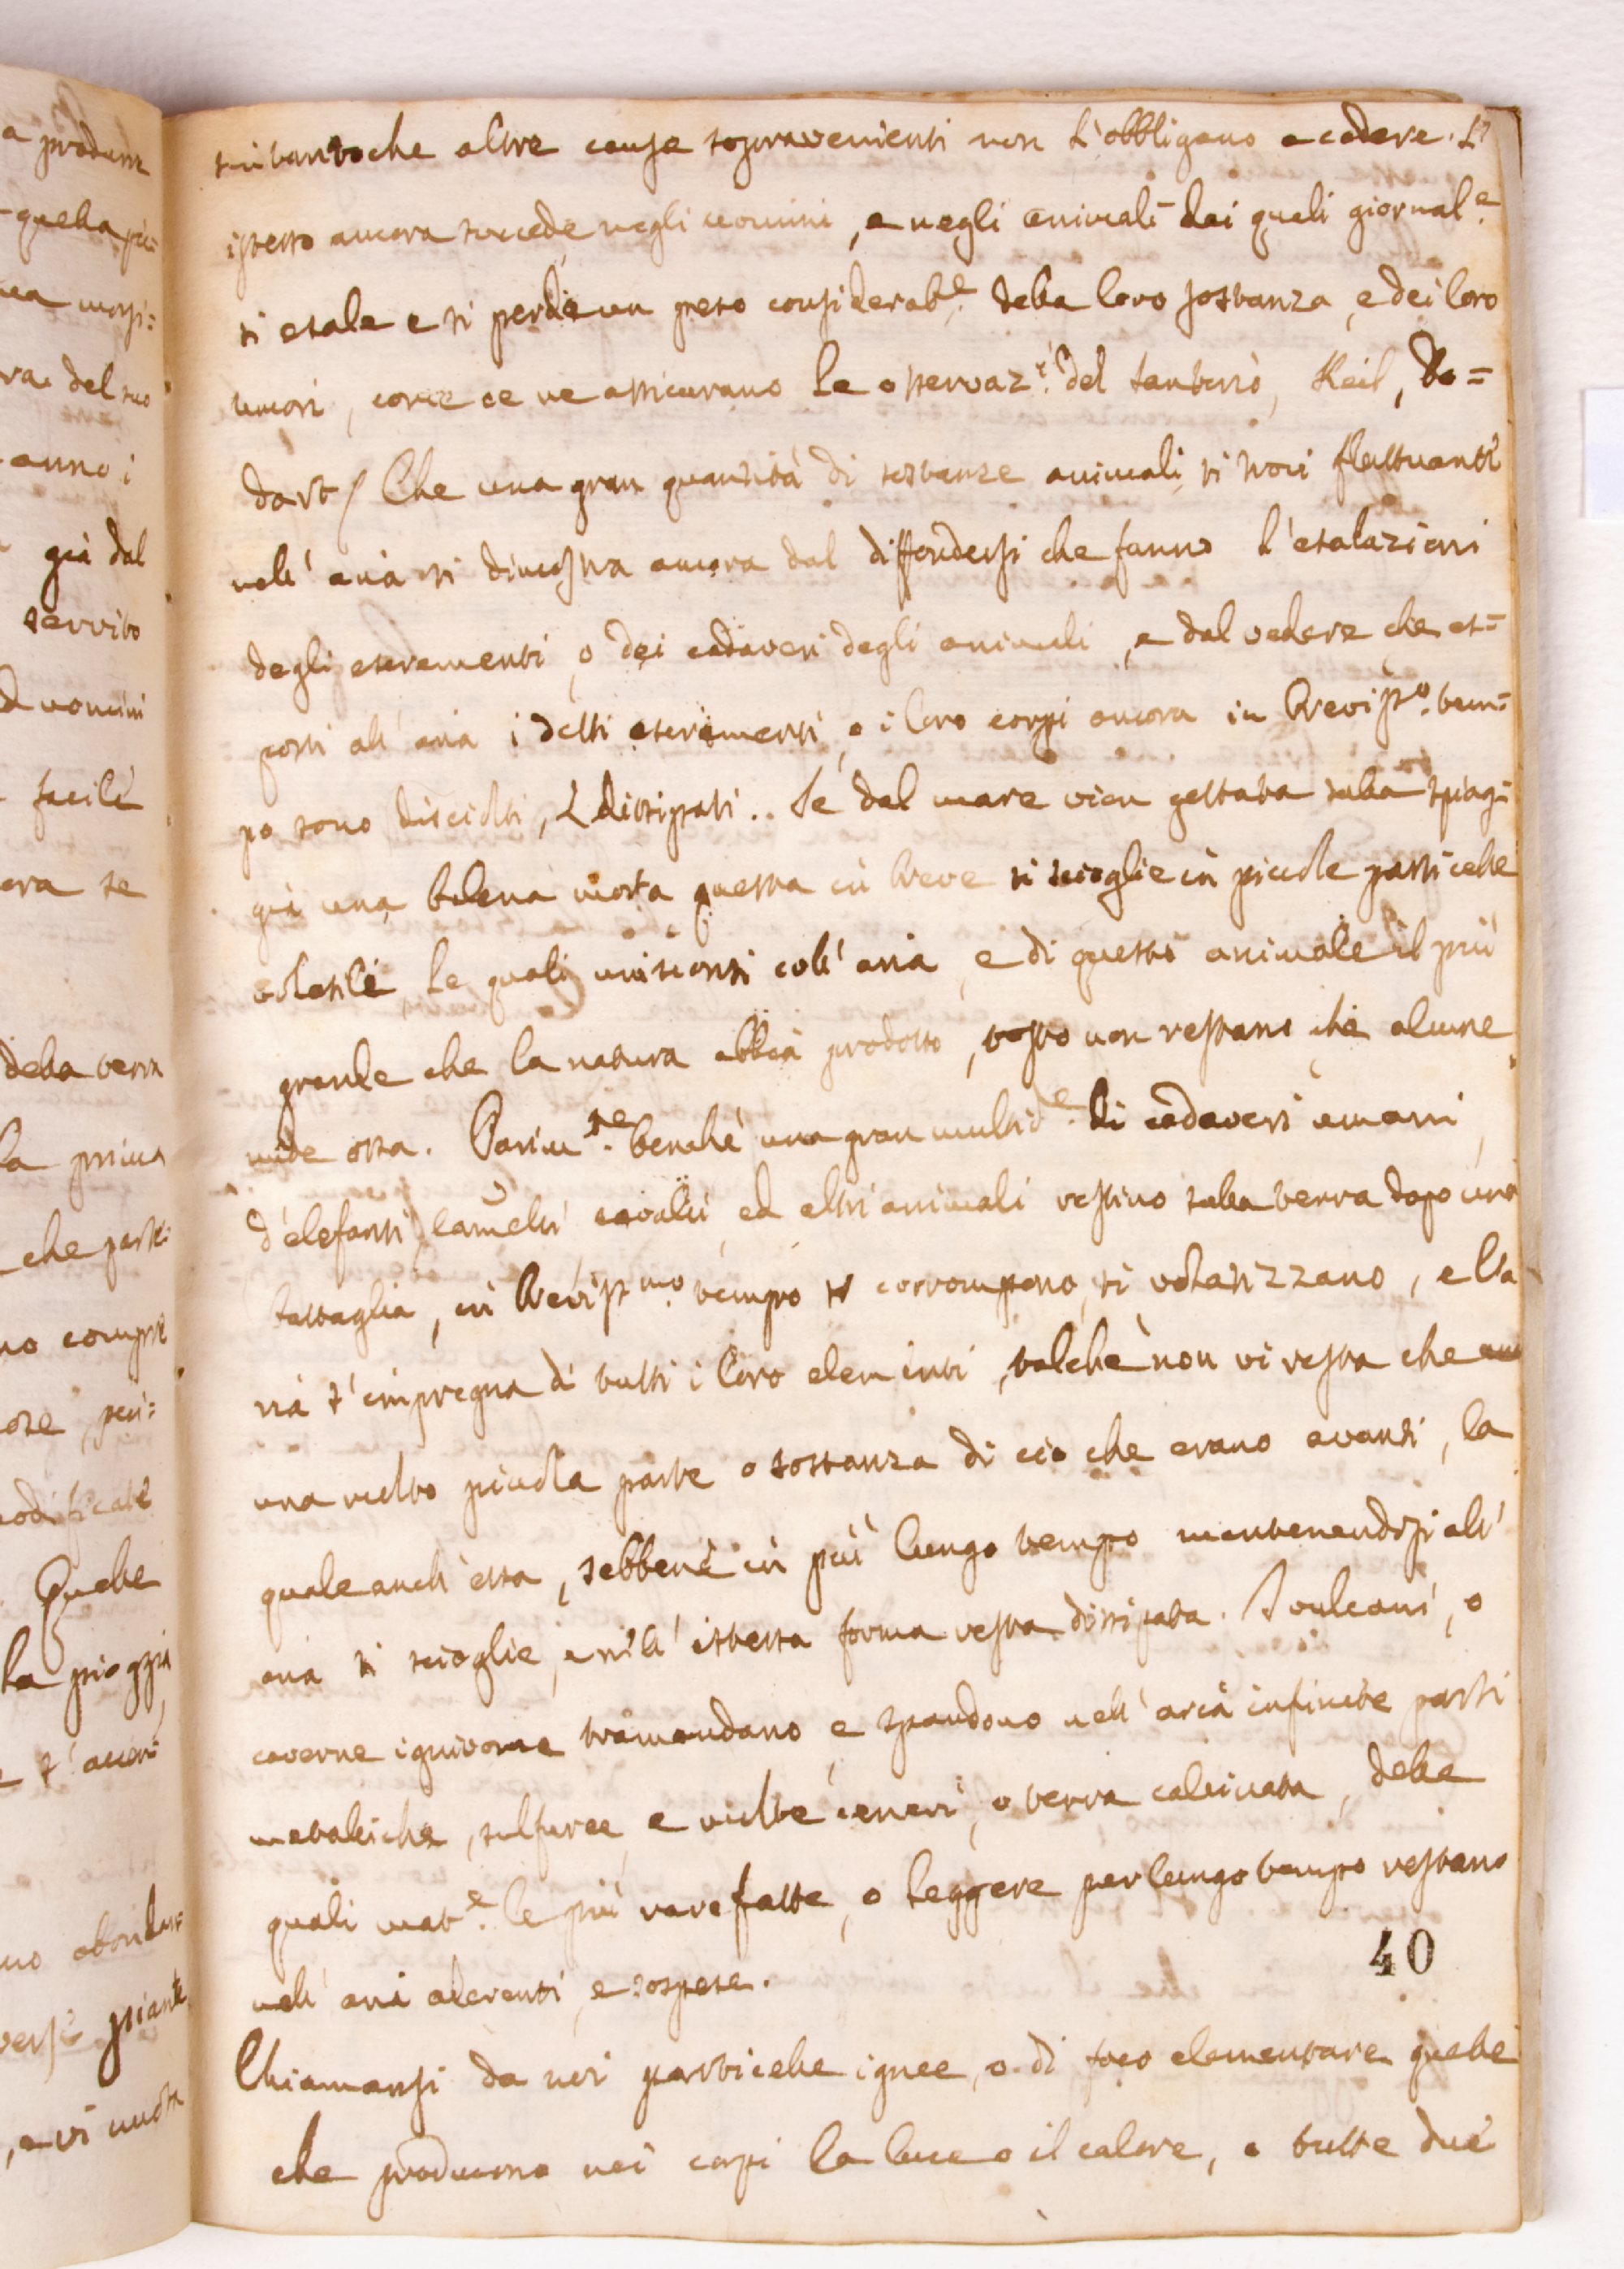 a produrre
quella più
sua massi=
ra. del suo
anno i
già dal
servito
d uomini
facile
ora se
della terra
la prima
che parti=
no compre
ose, più=
modificate
Quelle
la pioggia
e s'accor=
no abondan=
versi piante
, e vi molta
sin tanto che altre cause sopravenienti non l'obbligano a cadere. L'
istesso ancora succede negli uomini, e negli animali dei quali giornal.e
si esala e si perde un peso considerab.e della loro sostanza, e dei loro
umori, come ce ne assicurano le osservaz.i del Santorio, Keil, Do=
dart / Che una gran quantità di sostanze animali si trovi fluttuanti
nell'aria si dimostra ancora dal diffondersi che fanno l'esalazioni
degli escrementi, o dei cadaveri degli animali, e dal vedere che es=
posti all'aria i detti escrementi, o i loro corpi ancora in brevis.o tem=
po sono disciolti, e dissipati.. Se dal mare vien gettata sulla spiag=
gia una balena morta questa in breve si scioglie in piccole particelle
volatili le quali unisconsi coll'aria, e di questo animale il più
grande che la natura abbia prodotto, tosto non restano che alcune
nude ossa. Parim.te benchè una gran moltid.e di cadaveri umani,
d'elefanti, camelli, cavalli, ed altri animali restino sulla terra dopo una
battaglia, in breviss.mo tempo si corrompono, si volatizzano, e l'a
ria s'impregna di tutti i loro elementi, talchè non vi resta che
una molto piccola parte o sostanza di ciò che erano avanti, la
quale anch'essa, sebbene in più lungo tempo mantenendosi all'
aria si scioglie, e nell'istessa forma resta dissipata. I vulcani, o
caverne ignivome tramandano, e spandono nell'aria infinite parti
metalliche, sulfuree, e molte ceneri, o terra calcinata, delle
quali mat.e le più rarefatte, o leggere per lungo tempo restano
nell'aria aderenti, e sospese.
40
Chiamansi da noi particelle ignee, o di foco elementare quelle
che producono nei corpi la luce o il calore, o tutte due